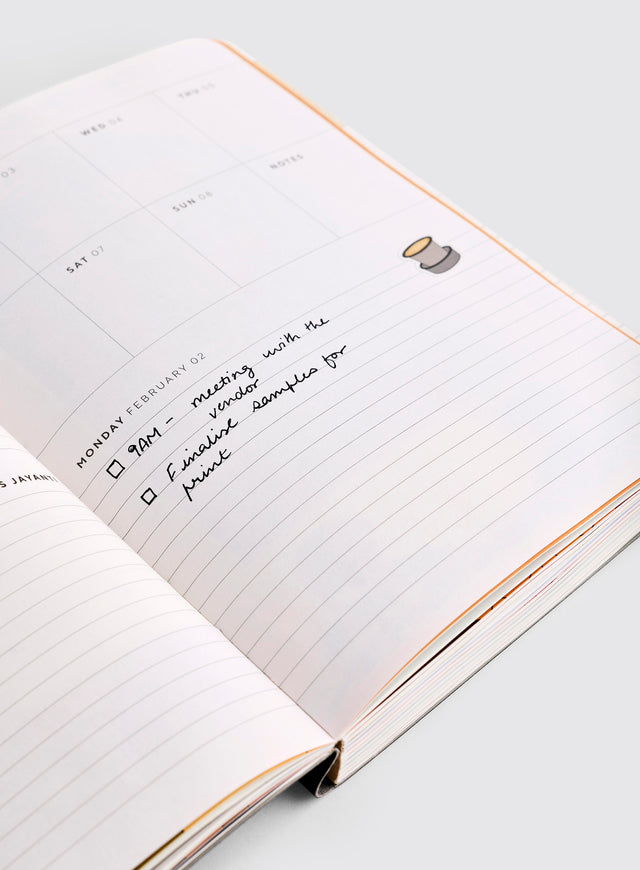 THU 05
WED 04
03
NOTES
SUN 08
SAT 07
MONDAY FEBRUARY 02
9AM - meeting with the
vendor
Finalise samples for
print
S JAYANTI